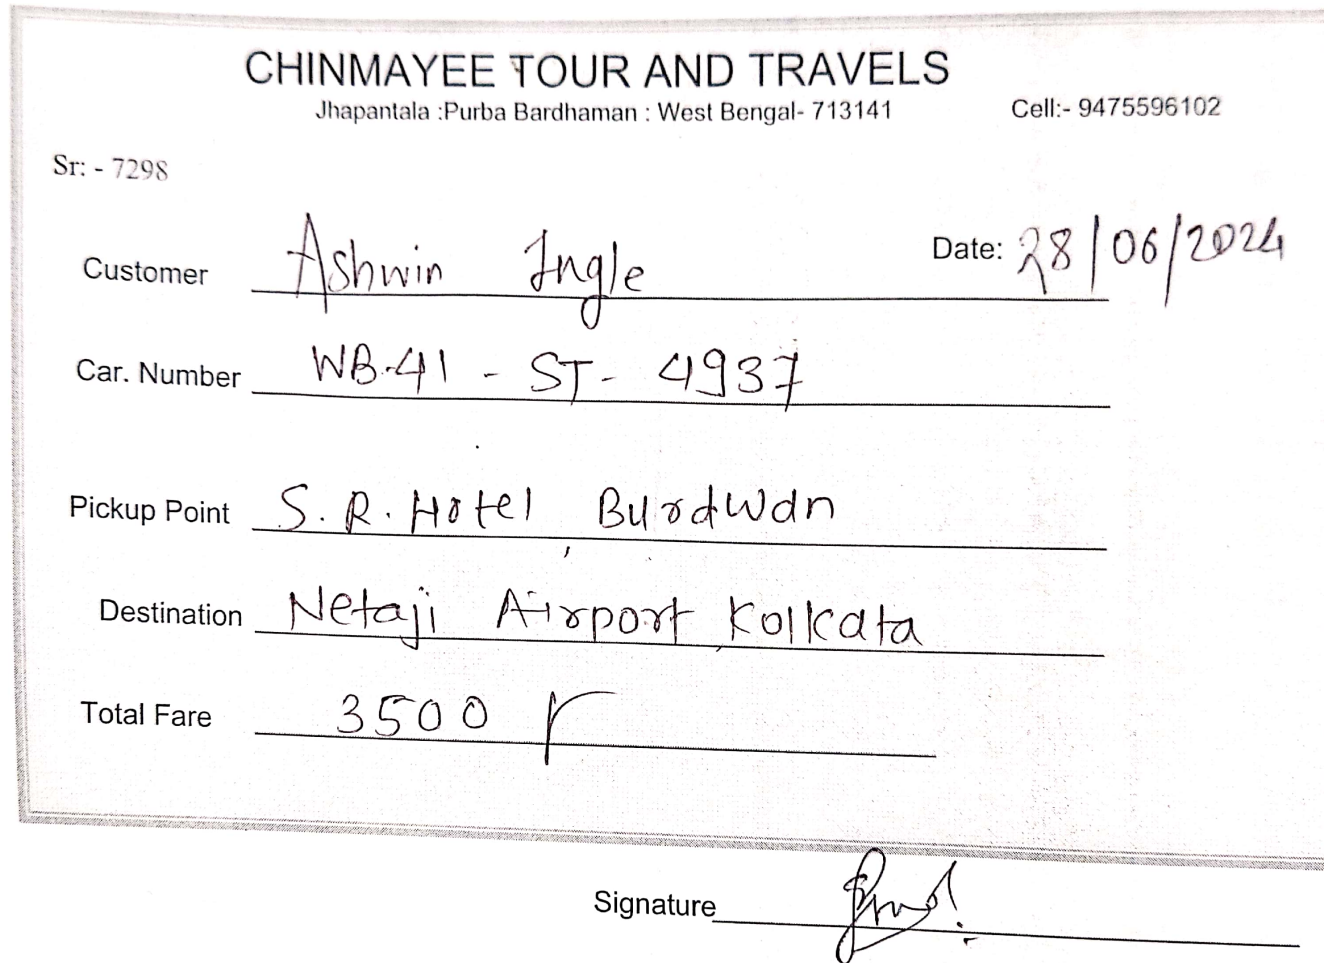 CHINMAYEE TOUR AND TRAVELS
Jhapantala :Purba Bardhaman : West Bengal- 713141 Cell:- 9475596102
Sr: - 7298
Customer Ashwin Ingle Date: 28/06/2024
Car. Number WB-41 - ST - 4937
Pickup Point S.R. Hotel, Burdwan
Destination Netaji Airport, Kolkata
Total Fare 3500
Signature